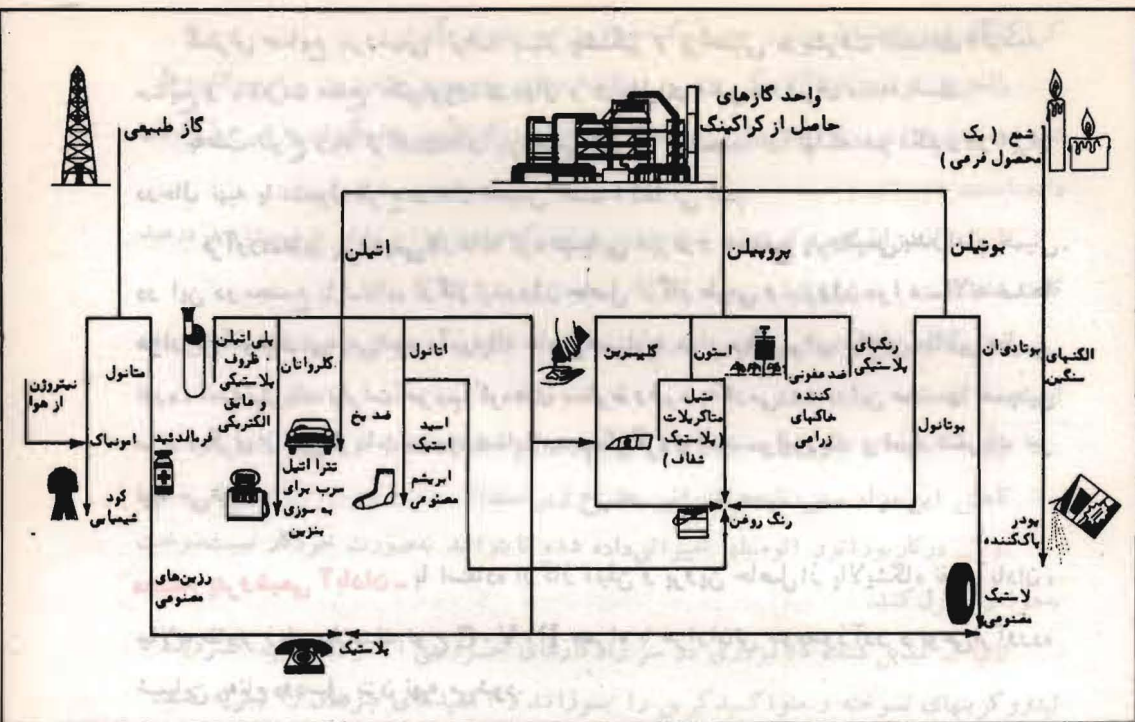 گاز طبیعی
واحد گازهای
حاصل از کراکینگ
شمع ( یک
محصول فرعی )
اتیلن
پروپیلن
بوتیلن
نیتروژن
از هوا
متانول
امونیاک
فرمالدئید
کود
شیمیایی
پلی‌اتیلن
ظروف
پلاستیکی
و عایق
الکتریکی
کلرواتان
تترا اتیل
سرب برای
به سوزی
بنزین
اتانول
ضد یخ
اسید
استیک
ابریشم
مصنوعی
گلیسرین
استون
متیل
متاکریلات
( پلاستیک
شفاف )
ضد عفونی
کننده
خاکهای
زراعی
رنگهای
پلاستیکی
رنگ روغن
بوتانول
بوتادی‌ان
الکنهای
سنگین
پودر
پاک‌کننده
لاستیک
مصنوعی
رزین‌های
مصنوعی
پلاستیک